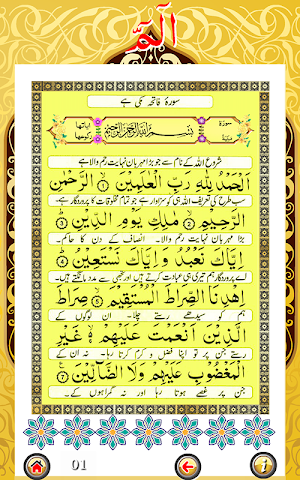 الٓمّٓ
سورۃ فاتحہ مکی ہے
بِسْمِ اللهِ الرَّحْمٰنِ الرَّحِيْمِ
شروع اللہ کے نام سے جو بڑا مہربان نہایت رحم والا ہے
اَلْحَمْدُ لِلّٰهِ رَبِّ الْعٰلَمِيْنَ ۱ الرَّحْمٰنِ
سب طرح کی تعریف اللہ ہی کو سزاوار ہے جو تمام مخلوقات کا پروردگار ہے۔
الرَّحِيْمِ ۲ مٰلِكِ يَوْمِ الدِّيْنِ ۳
بڑا مہربان نہایت رحم والا۔ انصاف کے دن کا حاکم۔
اِيَّاكَ نَعْبُدُ وَاِيَّاكَ نَسْتَعِيْنُ ۴
اے پروردگار ہم تیری ہی عبادت کرتے ہیں اور تجھی سے مدد مانگتے ہیں۔
اِهْدِنَا الصِّرَاطَ الْمُسْتَقِيْمَ ۵ صِرَاطَ
ہم کو سیدھے رستے چلا۔ ان لوگوں کے
الَّذِيْنَ اَنْعَمْتَ عَلَيْهِمْ ۶ غَيْرِ
رستے جن پر تو اپنا فضل و کرم کرتا رہا۔ نہ ان کے
الْمَغْضُوْبِ عَلَيْهِمْ وَلَا الضَّآلِّيْنَ ۷
جن پر غصے ہوتا رہا اور نہ گمراہوں کے۔
01